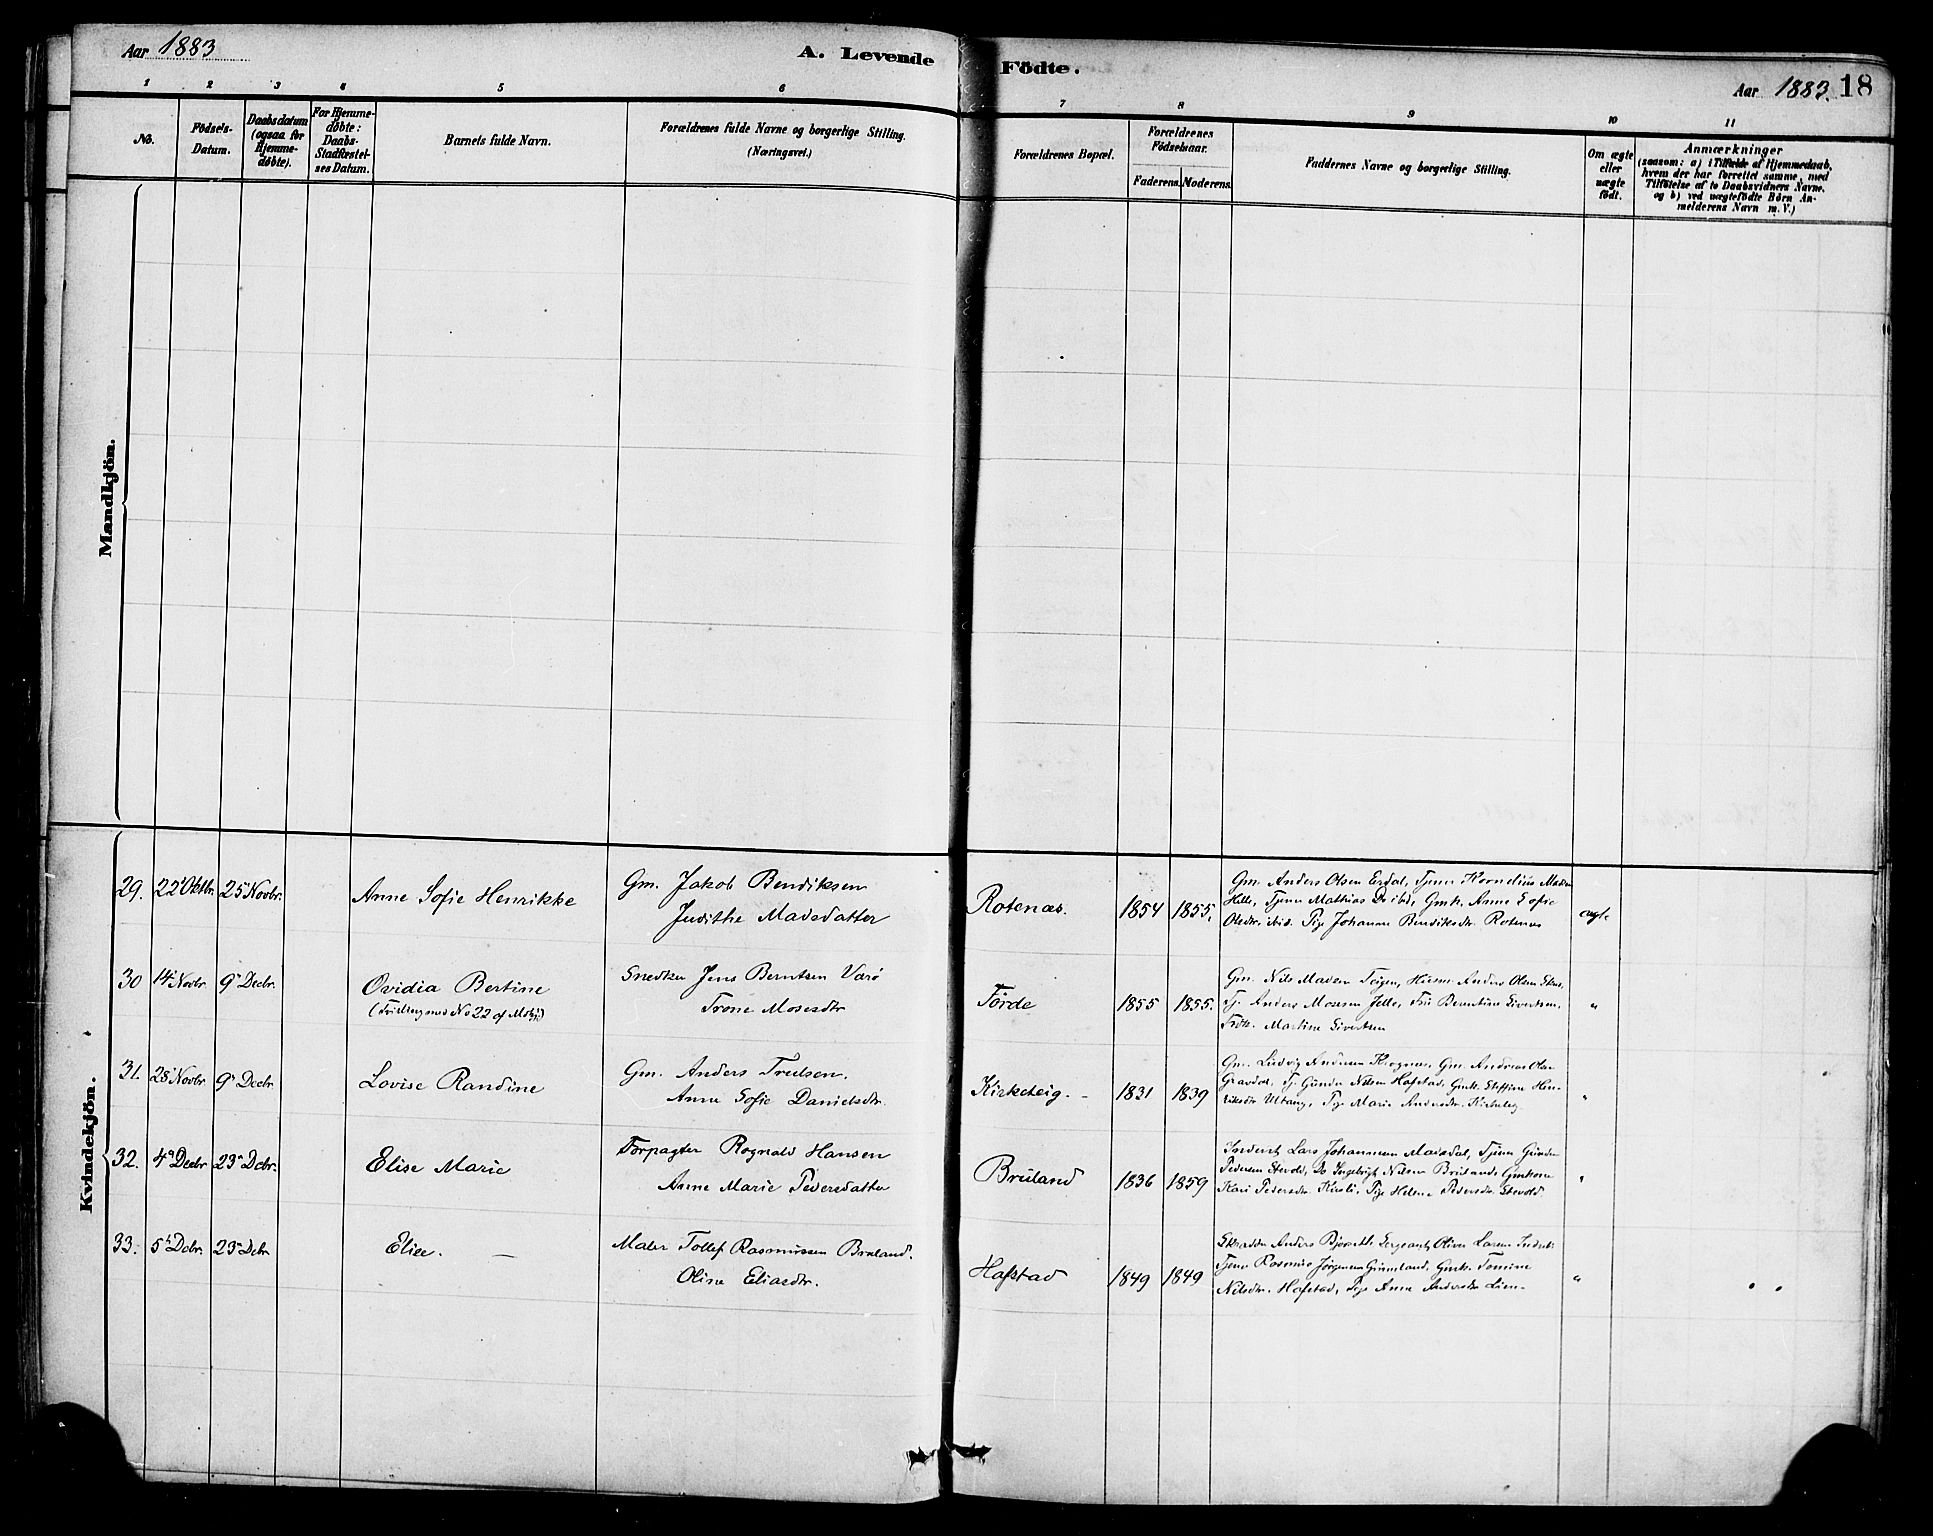 Aar 1883
A. Levende
Födte.
Aar 1883. 18
1 2 3 4 5 6 7 8 9 10 11
No.
Fødsels-
Datum.
Daabsdatum
(ogsaa for
Hjemme-
døbte).
For Hjemme-
døbte:
Daabs-
Stadfæstel-
ses Datum.
Barnets fulde Navn.
Forældrenes fulde Navne og borgerlige Stilling.
(Næringsvei.)
Forældrenes Bopæl.
Forældrenes
Födselsaar.
Faderens. Moderens.
Faddernes Navne og borgerlige Stilling.
Om ægte
eller
uægte
födt.
Anmærkninger
(saasom: a) i Tilfælde af Hjemmedaab,
hvem der har forrettet samme, med
Tilföielse af to Daabsvidners Navne.
og b) ved uægtefödte Börn An-
melderens Navn m. V.)
Mandkjön.
Kvindekjön.
29. 22 Oktbr. 25 Novbr. Anne Sofie Henrikke
Gm. Jakob Bendiksen
Judithe Madsdatter
Rotenæs. 1854 1855.
Gm. Anders Olsen Erdal, Tjener Kornelius Madsen
Hille, Tjener Mathias Do ibd, Gmk. Anne Sofie
Olsdtr. ibid. Pige Johanne Bendiksdtr. Rotenæs
ægte
30 14 Novbr. 9 Decbr. Ovidia Bertine
(Tvilling med No 22 af Mkjø)
Snedker Jens Berntsen Varø
Trone Mosesdtr
Förde 1855 1855.
Gm. Nils Madsen Teigen, Anders Olsen
Tj. Anders Jelle, Berentine Sivertsen.
Martine Sivertsen
"
31. 28 Novbr 9 Decbr Lovise Randine
Gm. Anders Trulsen.
Anne Sofie Danielsdtr.
Kirketeig. - 1831 1839
Gm. Ludvig Andersen Gm. Andreas Olsen
Gravdal, Tj. Gunder Nilsen Hafstad, Gmk. Steffine Hen-
riksdtr Utvang, Pige Marie Andersdtr. Kirketeig
"
32. 4 Decbr 23 Dcbr. Elise Marie
Forpagter Rognald Hansen
Anne Marie Pedersdatter
Bruland 1836 1859
Inderst Lars Johannesen Mavsdal, Tjener Gunder
Pedersen Stevold, Do Ingebrigt Nilsen Bruland, Gmkone
Kari Pedersdtr. Pige Helene Pedersdtr. Stevold
"
33. 5 Dcbr. 23 Dcbr Elise. —
Maler Tollef Rasmussen Bruland.
Oline Eliasdtr.
Hafstad 1849 1849
Skrædder Anders Sergeant Oliver Larsen
Tjener Rasmus Jørgensen Grimeland, Gmk. Tomine
Nilsdtr. Hafstad, Pige Anne Andersdtr Lien-
"